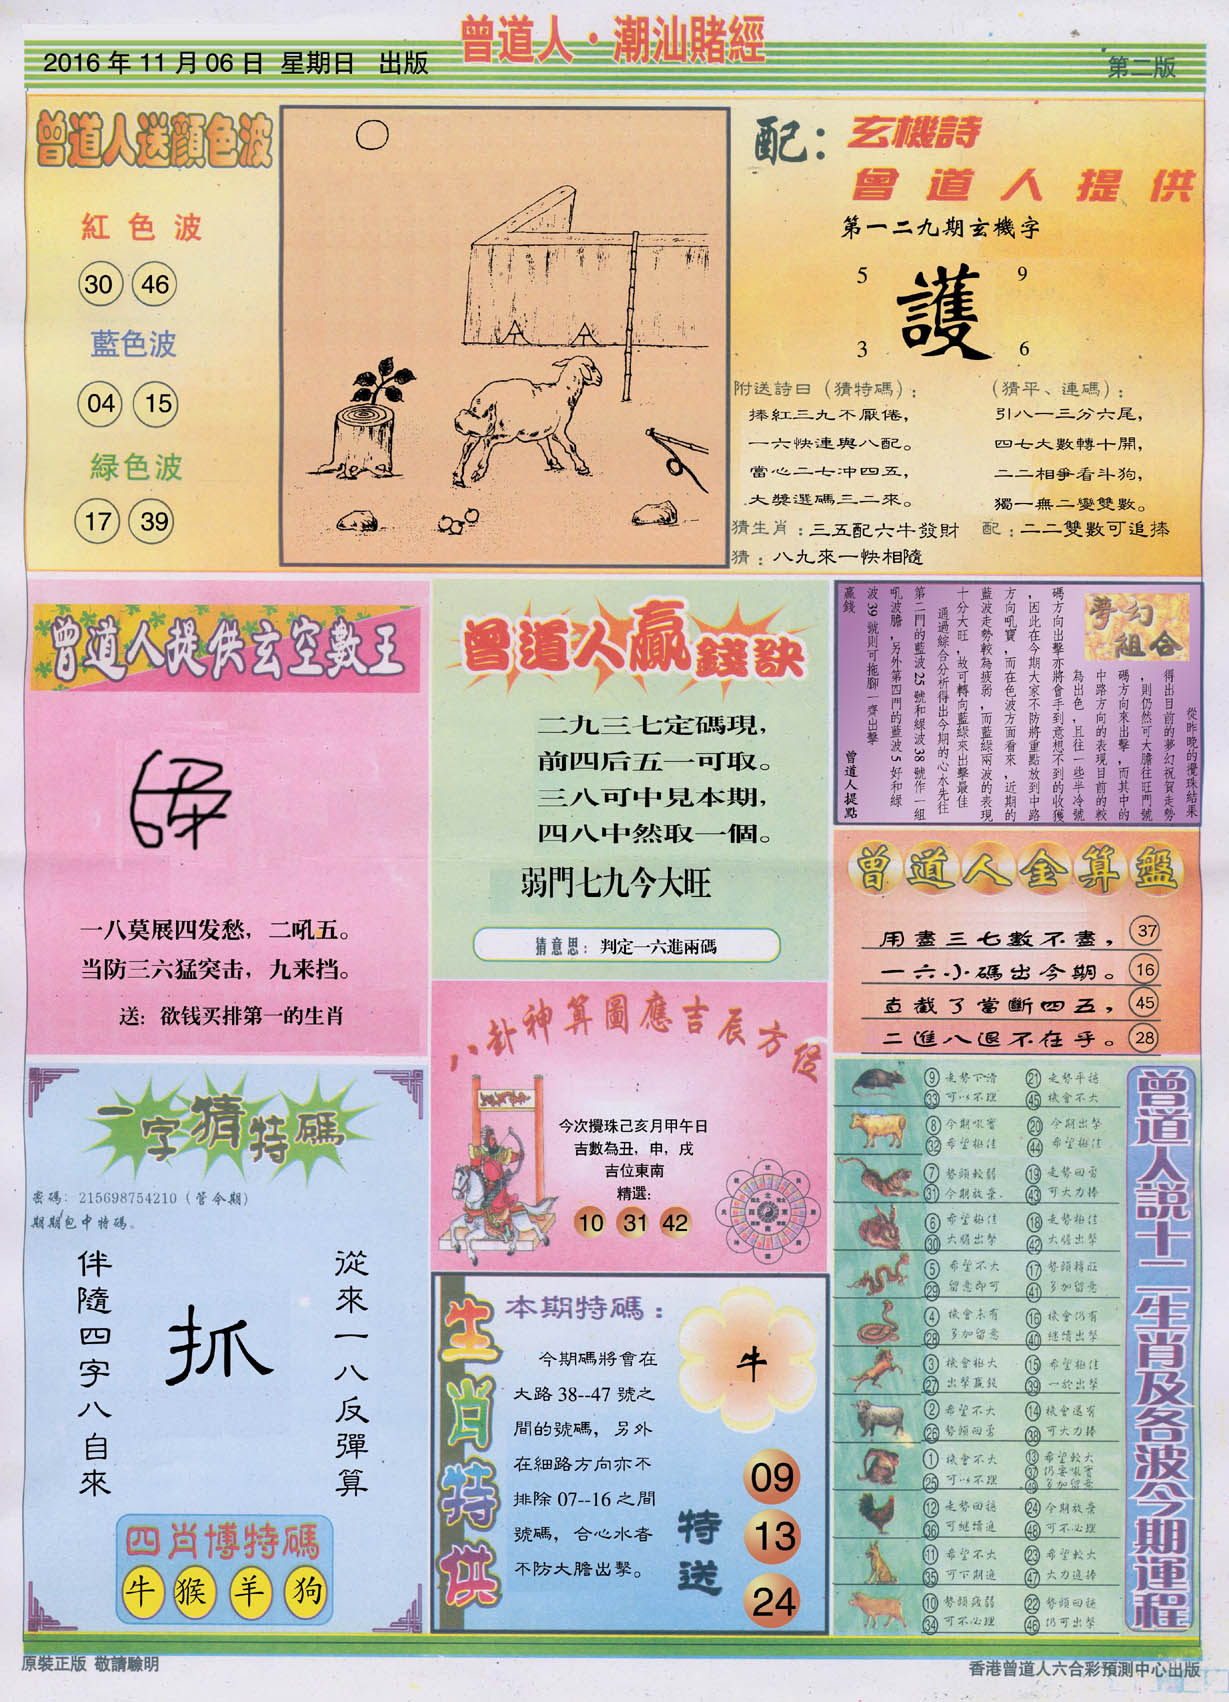 曾道人·潮汕賭經
2016年11月06日 星期日 出版
第二版
曾道人送顏色波
紅色波
30 46
藍色波
04 15
緑色波
17 39
配：玄機詩
曾道人提供
第一二九期玄機字
5 9
護
3 6
附送詩曰（猜特碼）：
捧紅三九不厭倦，
一六快連與八配。
當心二七冲四五，
大獎選碼三二來。
（猜平、連碼）：
引八一三分六尾，
四七大數轉十開，
二二相爭看斗狗，
獨一無二變雙數。
猜生肖：三五配六牛發財
配：二二雙數可追捧
猜：八九來一快相隨
曾道人提供玄空數王
一八莫展四发愁，二吼五。
当防三六猛突击，九来挡。
送：欲钱买排第一的生肖
曾道人贏錢訣
二九三七定碼現，
前四后五一可取。
三八可中見本期，
四八中然取一個。
弱門七九今大旺
猜意思：判定一六進兩碼
夢幻組合
從昨晚的攪珠結果
得出目前的夢幻祝賀走勢
，則仍然可大膽往旺門號
碼方向來出擊，而其中的
中路方向的表現目前的較
為出色，且往一些半冷號
碼方向出擊亦將會手到意想不到的收獲
，因此在今期大家不防將重點放到中路
方向吼寶，而在色波方面看來，近期的
藍波走勢較為疲弱，而藍綠兩波的表現
十分大旺，故可轉向藍綠來出擊最佳
通過綜合分析得出今期的心水先往
第二門的藍波25號和綠波38號作一組
吼波膽，另外第四門的藍波5好和綠
波39號則可拖腳一齊出擊
贏錢
曾道人提點
曾道人金算盤
用盡三七數不盡，37
一六小碼出今期。16
直截了當斷四五，45
二進八退不在乎。28
一字猜特碼
密碼：215698754210（管令期）
期期包中特碼。
從來一八反彈算
抓
伴隨四字八自來
四肖博特碼
牛 猴 羊 狗
八卦神算圖應吉辰方位
今次攪珠己亥月甲午日
吉數為丑，申，戌
吉位東南
精選：
10 31 42
生肖特供
本期特碼：
今期碼將會在
大路38--47號之
間的號碼，另外
在細路方向亦不
排除07--16之間
號碼，合心水者
不防大膽出擊。
牛
特送
09
13
24
曾道人説十二生肖及各波今期運程
9 走勢下滑 21 走勢平穩
33 可以不理 45 機會不大
8 今期吼寶 20 今期出擊
32 希望極佳 44 希望極佳
7 勢頭較弱 19 走勢回勇
31 今期放棄 43 可大力捧
6 希望極佳 18 走勢極佳
30 大膽出擊 42 大膽出擊
5 希望不大 17 勢頭轉旺
29 留意即可 41 多加留意
4 機會未有 16 機會仍有
28 多加留意 40 繼續出擊
3 機會極大 15 希望極佳
27 出擊贏錢 39 一於出擊
2 希望不大 14 機會還有
26 勢頭回勇 38 可大力捧
1 機會不大 13 希望較大
25 可以不理 37 仍要吼寶
49 多加留意
12 走勢回穩 24 今期放棄
36 可繼續追 48 可不必理
11 希望不大 23 希望較大
35 可下期追 47 大力追捧
10 勢頭疲弱 22 勢頭回穩
34 可不必理 46 仍可出擊
原裝正版 敬請驗明
香港曾道人六合彩預測中心出版